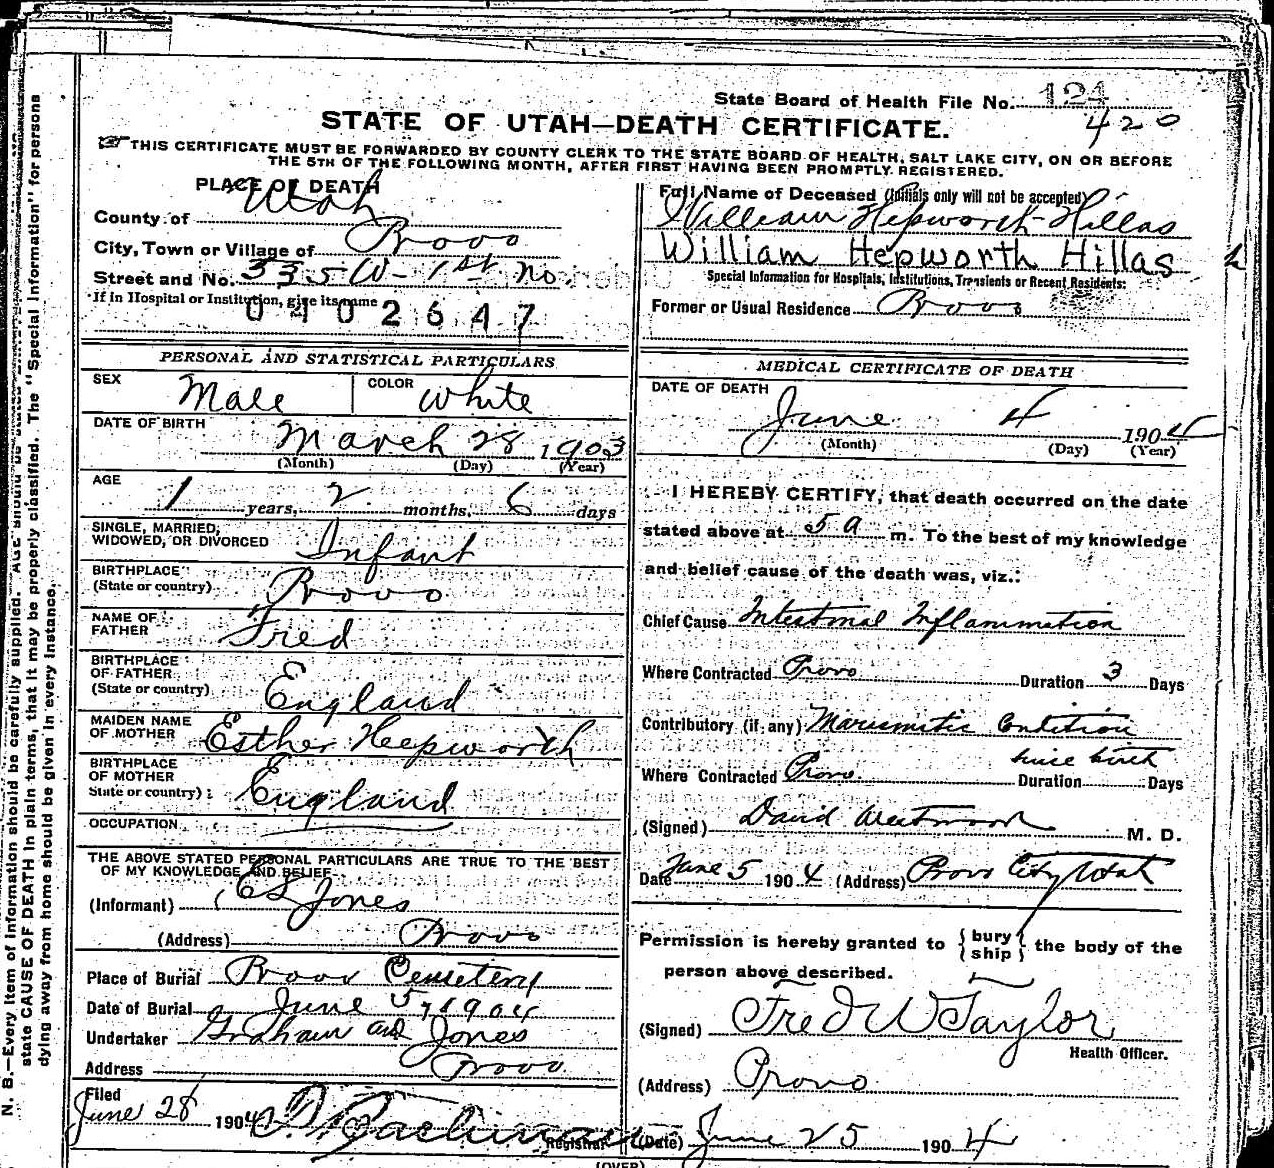 State Board of Health File No. 124
420
STATE OF UTAH—DEATH CERTIFICATE.
THIS CERTIFICATE MUST BE FORWARDED BY COUNTY CLERK TO THE STATE BOARD OF HEALTH, SALT LAKE CITY, ON OR BEFORE
THE 5TH OF THE FOLLOWING MONTH, AFTER FIRST HAVING BEEN PROMPTLY REGISTERED.
PLACE OF DEATH
County of Utah
City, Town or Village of Provo
Street and No. 335 W - 1st No.
If in Hospital or Institution, give its name
0402647
Full Name of Deceased (Initials only will not be accepted)
William Hepworth Hillas
William Hepworth Hillas
Special Information for Hospitals, Institutions, Transients or Recent Residents:
Former or Usual Residence Provo
PERSONAL AND STATISTICAL PARTICULARS
SEX Male COLOR White
DATE OF BIRTH
March 28 1903
(Month) (Day) (Year)
AGE
1 years, 2 months, 6 days
SINGLE, MARRIED,
WIDOWED, OR DIVORCED Infant
BIRTHPLACE
(State or country) Provo
NAME OF
FATHER Fred
BIRTHPLACE
OF FATHER
(State or country) England
MAIDEN NAME
OF MOTHER Esther Hepworth
BIRTHPLACE
OF MOTHER
State or country) England
OCCUPATION
THE ABOVE STATED PERSONAL PARTICULARS ARE TRUE TO THE BEST
OF MY KNOWLEDGE AND BELIEF
(Informant) Jones
(Address) Provo
Place of Burial Provo Cemetery
Date of Burial June 5, 1904
Undertaker Graham and Jones
Address Provo
Filed
June 28 1904
Registrar
MEDICAL CERTIFICATE OF DEATH
DATE OF DEATH
June 4 1904
(Month) (Day) (Year)
I HEREBY CERTIFY, that death occurred on the date
stated above at 5 a m. To the best of my knowledge
and belief cause of the death was, viz.:
Chief Cause Intestinal Inflammation
Where Contracted Provo Duration 3 Days
Contributory (if any) Marismitic Condition
since birth
Where Contracted Provo. Duration Days
(Signed) David Westwood M. D.
Date June 5 1904 (Address) Provo City Utah
Permission is hereby granted to {bury
ship} the body of the
person above described.
(Signed) Fred W Taylor
Health Officer.
(Address) Provo
(Date) June 25 1904
(OVER)
N. B.—Every item of information should be carefully supplied. AGE should be stated
state CAUSE OF DEATH in plain terms, that it may be properly classified. The "Special Information" for persons
dying away from home should be given in every instance.